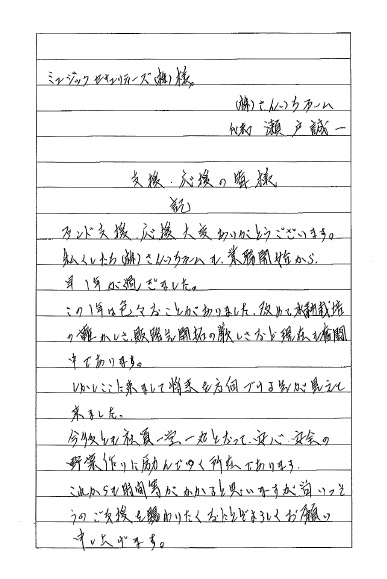 ミュージックセキュリティーズ(株)様
(株)さんいちファーム
代表 瀬戸誠一
支援・応援の皆様
記
ファンド支援、応援大変ありがとうございます。
私くしたち(株)さんいちファームも、業務開始から
早1年が過ぎました。
この1年は色々なことがありました、改めて水耕栽培
の難かしさ、販路先開拓の厳しさなど現在も奮闘
中であります。
しかしここに来まして将来を方向づける先が見えて
来ました。
今後とも社員一学一丸となって、安心、安全の
野菜作りに励んでゆく所存であります。
これからも時間等がかかると思いますが尚いっそ
うのご支援を賜わりたくなにとぞよろしくお願い
申し上げます。